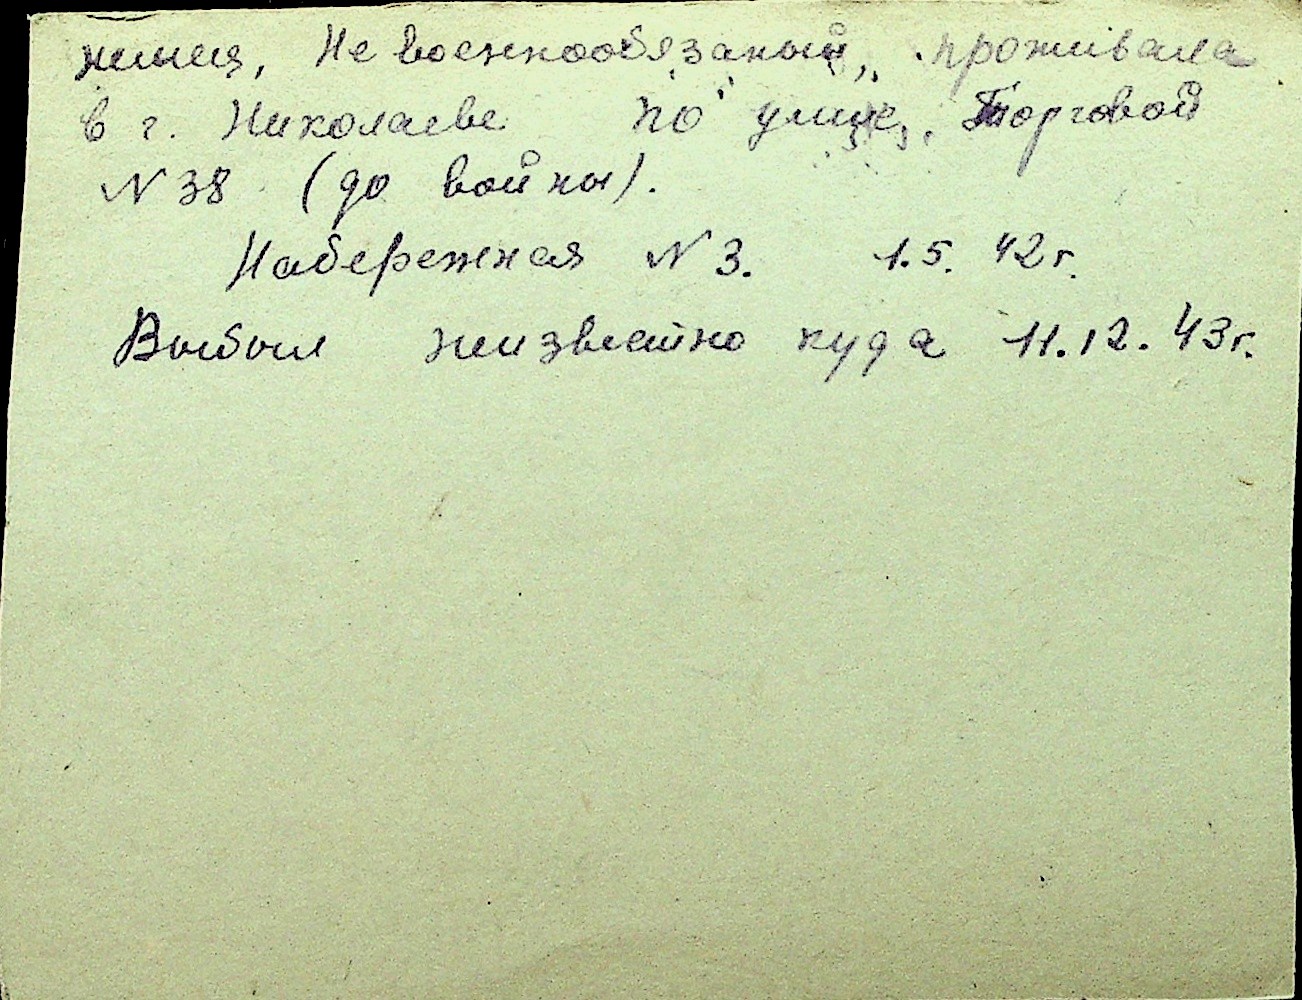 немец, Не военнообязаный, проживала
в г. Николаеве по улице, Торговой
N 38 (до войны).
Набережная N 3. 1.5. 42 г.
Выбыл неизвестно куда 11.12. 43 г.